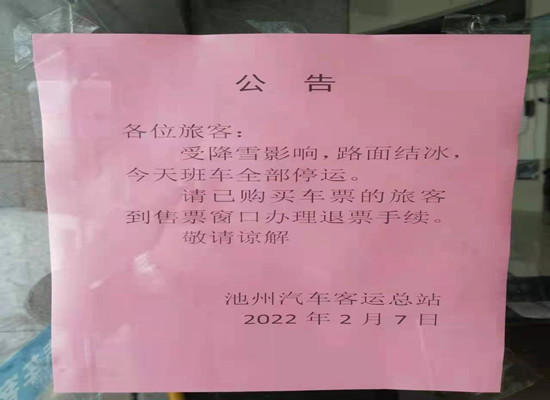 公 告
各位旅客：
受降雪影响，路面结冰，
今天班车全部停运。
请已购买车票的旅客
到售票窗口办理退票手续。
敬请谅解
池州汽车客运总站
2022 年 2 月 7 日